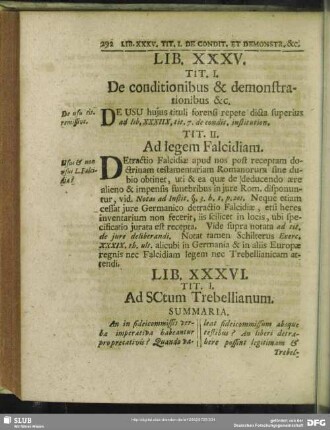 292 LIB. XXXV. TIT. I. DE CONDIT. ET DEMONSTR. &c.
LIB. XXXV.
TIT. I.
De conditionibus & demonstra-
tionibus &c.
De usu tit.
remissive.
DE USU hujus tituli forensi repete dicta superius
ad lib. XXVIII. tit. 7. de condit. institution.
TIT. II.
Ad legem Falcidiam.
Usus & non
usus L. Falci-
diæ?
DEtractio Falcidiæ apud nos post receptam do-
ctrinam testamentariam Romanorum sine du-
bio obtinet, uti & ea quæ de deducendo ære
alieno & impensis funebribus in jure Rom. disponun-
tur, vid. Notas ad Instit.
cessat jure Germanico detractio Falcidiæ, etsi heres
inventarium non fecerit, iis scilicet in locis, ubi spe-
cificatio jurata est recepta. Vide supra notata ad tit.
de jure deliberandi. Notat tamen Schilterus Exerc.
XXXIX. th. ult. alicubi in Germania & in aliis Europæ
regnis nec Falcidiam legem nec Trebellianicam at-
tendi.
LIB. XXXVI.
TIT. I.
Ad SCtum Trebellianum.
SUMMARIA.
An in fideicommissis ver-
ba imperativa habeantur
pro precativis? Quando va-
leat fideicommissum absque
testibus? An liberi detra-
here possint legitimam &
Trebel-
SLUB
Wir führen Wissen.
http://digital.slub-dresden.de/
gefördert von der
Deutschen Forschungsgemeinschaft
DFG